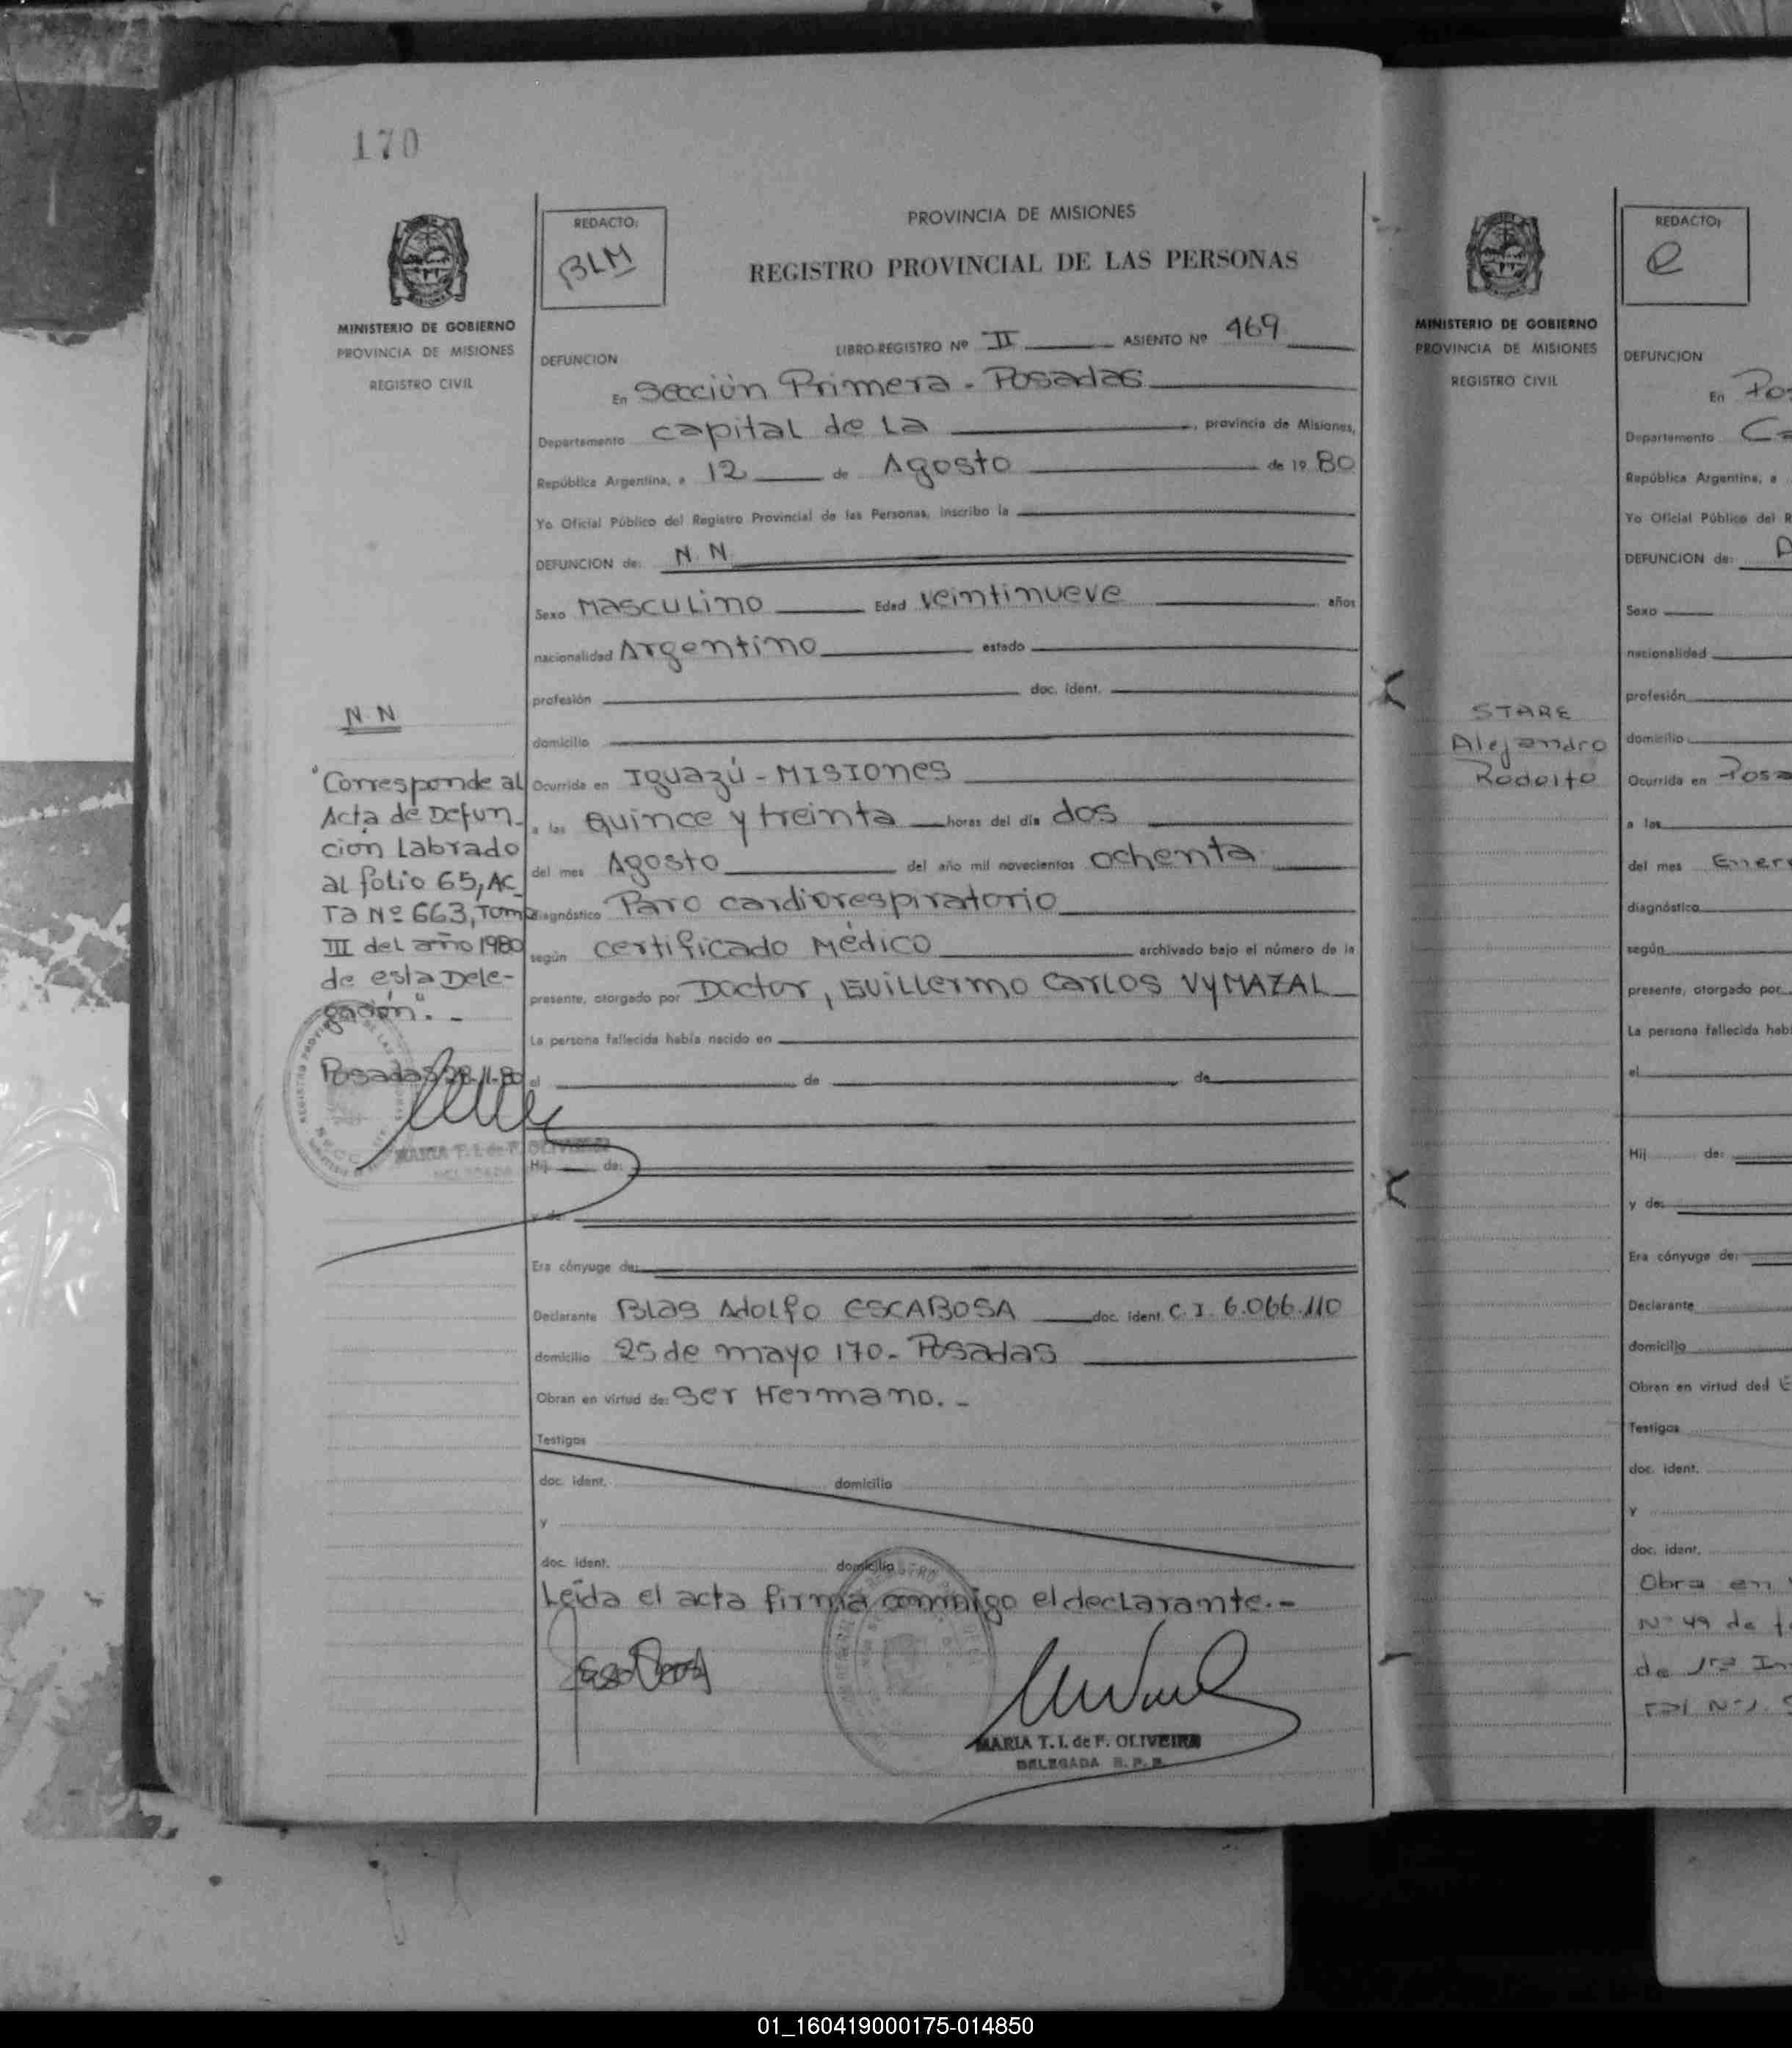 170
MINISTERIO DE GOBIERNO
PROVINCIA DE MISIONES
REGISTRO CIVIL
REDACTO:
BLM
PROVINCIA DE MISIONES
REGISTRO PROVINCIAL DE LAS PERSONAS
LIBRO-REGISTRO Nº II ASIENTO Nº 469
DEFUNCION
En Sección Primera - Posadas
Departamento capital de la , provincia de Misiones,
República Argentina, a 12 de Agosto de 1980
Yo Oficial Público del Registro Provincial de las Personas, inscribo la
DEFUNCION de: N.N
Sexo Masculino Edad veintinueve años
nacionalidad Argentino estado
profesión doc. ident.
domicilio
Ocurrida en Iguazú - Misiones
a las Quince y treinta horas del día dos
del mes Agosto del año mil novecientos ochenta
diagnóstico Paro cardiorespiratorio
según certificado Médico archivado bajo el número de la
presente, otorgado por Doctor, Guillermo Carlos VYMAZAL
La persona fallecida había nacido en
el de de
Hij de:
y de:
Era cónyuge de:
Declarante Blas Adolfo ESCABOSA doc. ident. C.I. 6.066.110
domicilio 25 de mayo 170 - Posadas
Obran en virtud de: Ser Hermano. -
Testigos
doc. ident. domicilio
y
doc. ident. domicilio
Leída el acta firma conmigo el declarante. -
MARIA T. I. de F. OLIVEIRA
DELEGADA R. P. P.
N.N
"Corresponde al
Acta de Defun-
ción Labrado
al folio 65, Ac-
ta Nº 663, Tomo
III del año 1980
de esta Dele-
gación". -
Posadas 28-11-80
MARIA T. I. de F. OLIVEIRA
DELEGADA
MINISTERIO DE GOBIERNO
PROVINCIA DE MISIONES
REGISTRO CIVIL
STARE
Alejandro
Rodolfo
REDACTO:
DEFUNCION
En Pos
Departamento Ca
República Argentina, a
Yo Oficial Público del R
DEFUNCION de:
Sexo
nacionalidad
profesión
domicilio
Ocurrida en Posa
a las
del mes Ener
diagnóstico
según
presente, otorgado por
La persona fallecida habí
el
Hij de:
y de:
Era cónyuge de:
Declarante
domicilio
Obran en virtud de
Testigos
doc. ident.
y
doc. ident.
Obra en
Nº 49 de
de 1ra In
01_160419000175-014850